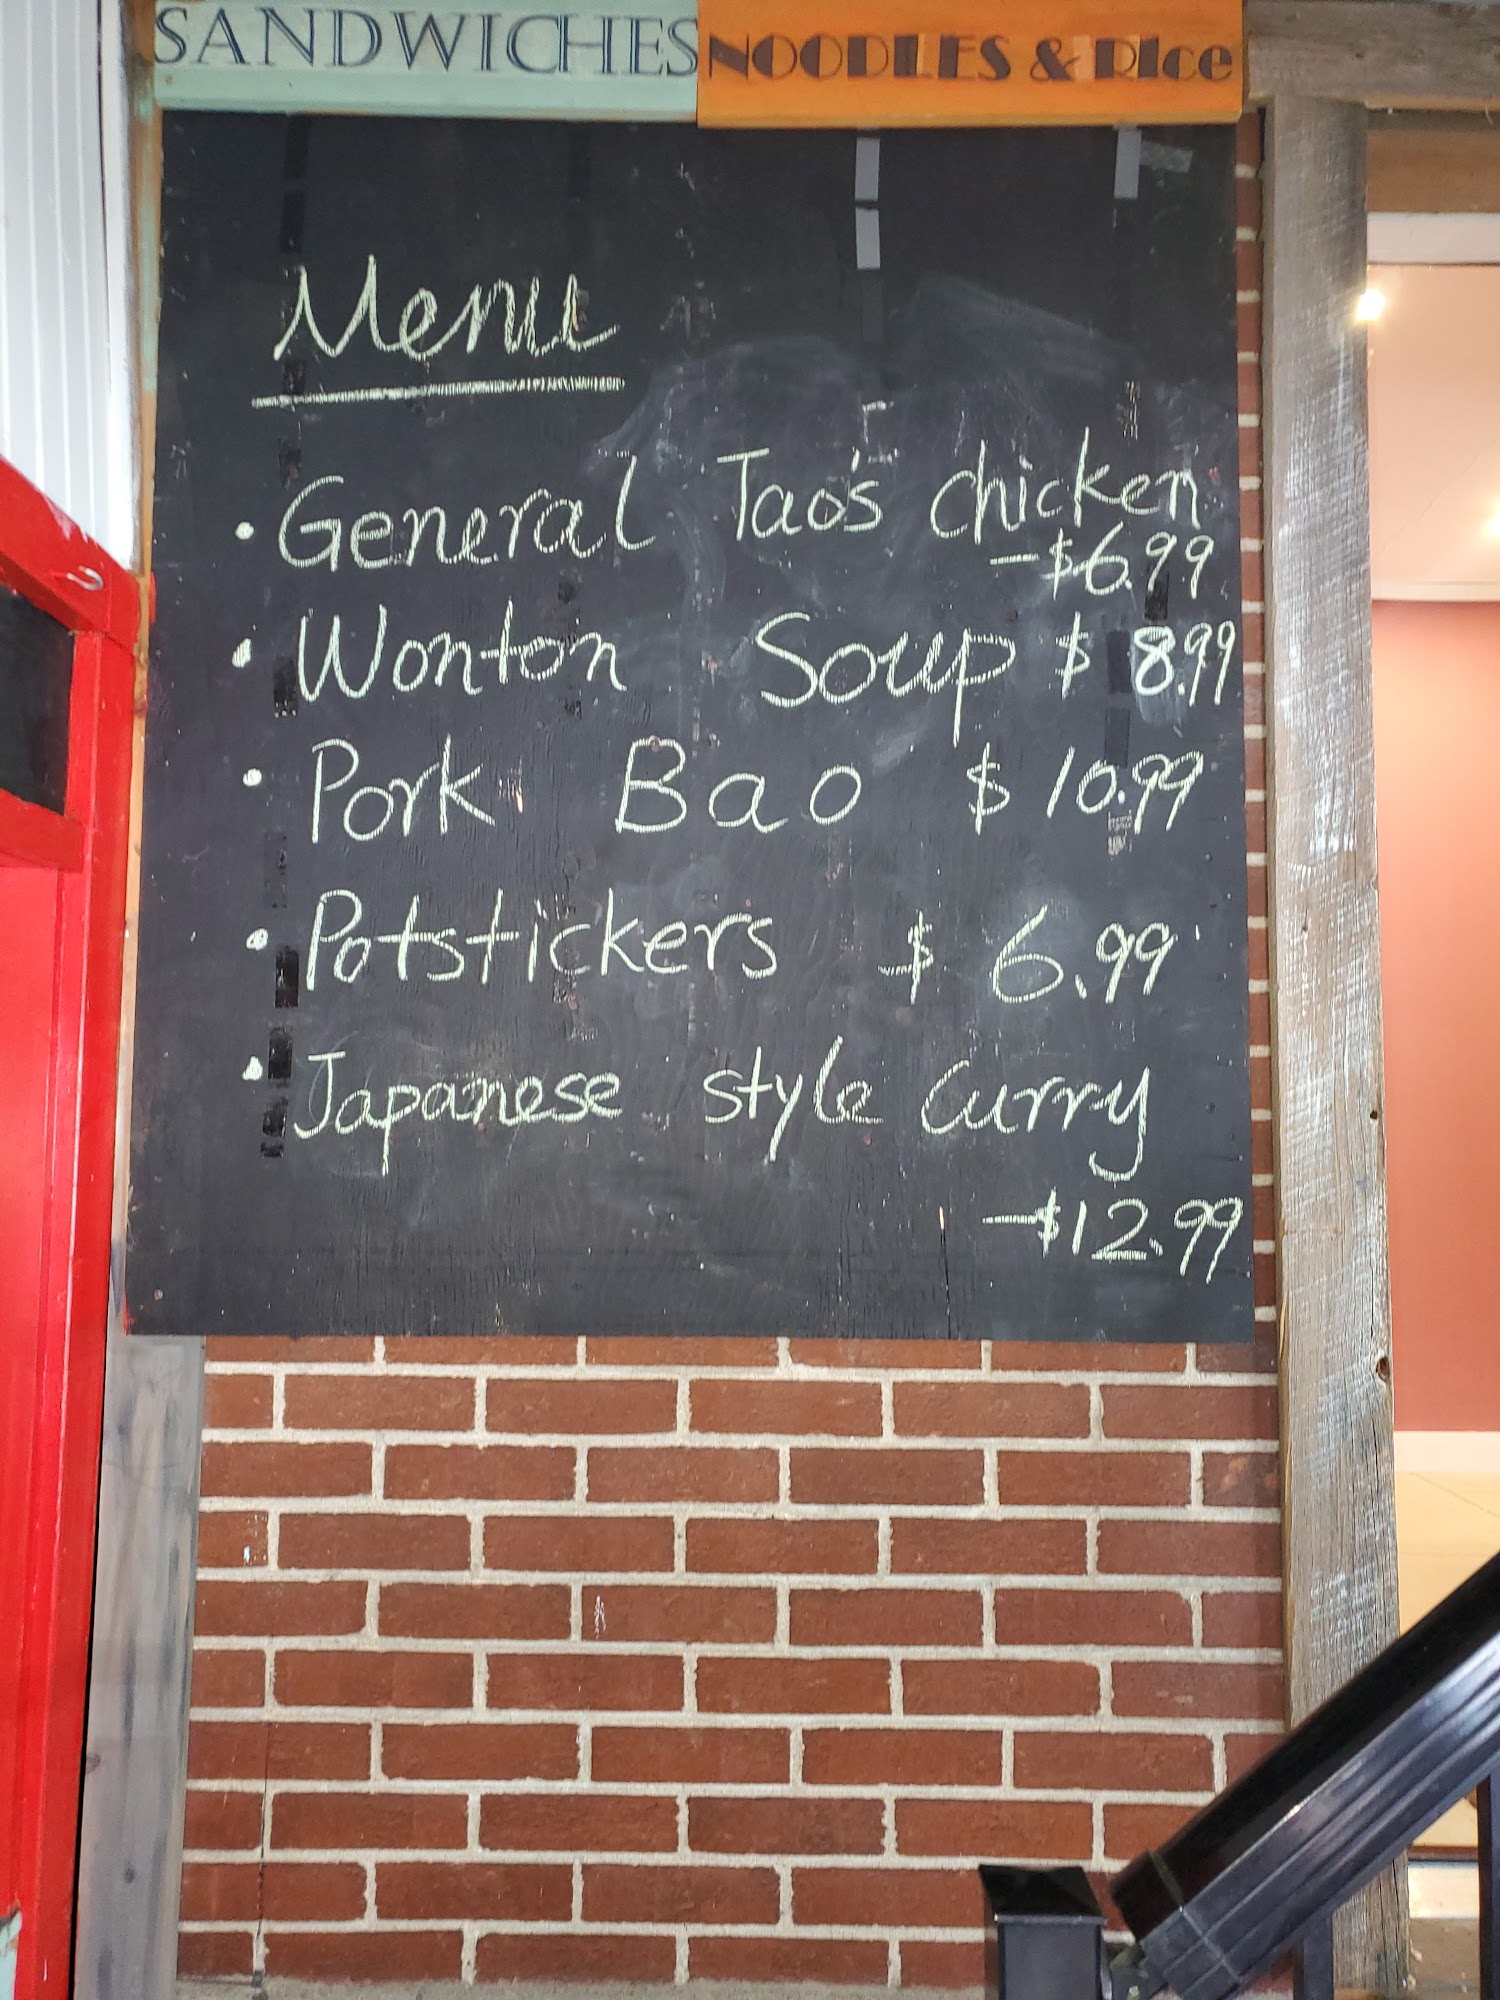 SANDWICHES NOODLES & RIce
Menu
• General Tao's chicken
- $6.99
• Wonton Soup $ 8.99
• Pork Bao $ 10.99
• Potstickers $ 6.99
• Japanese style curry
- $12.99